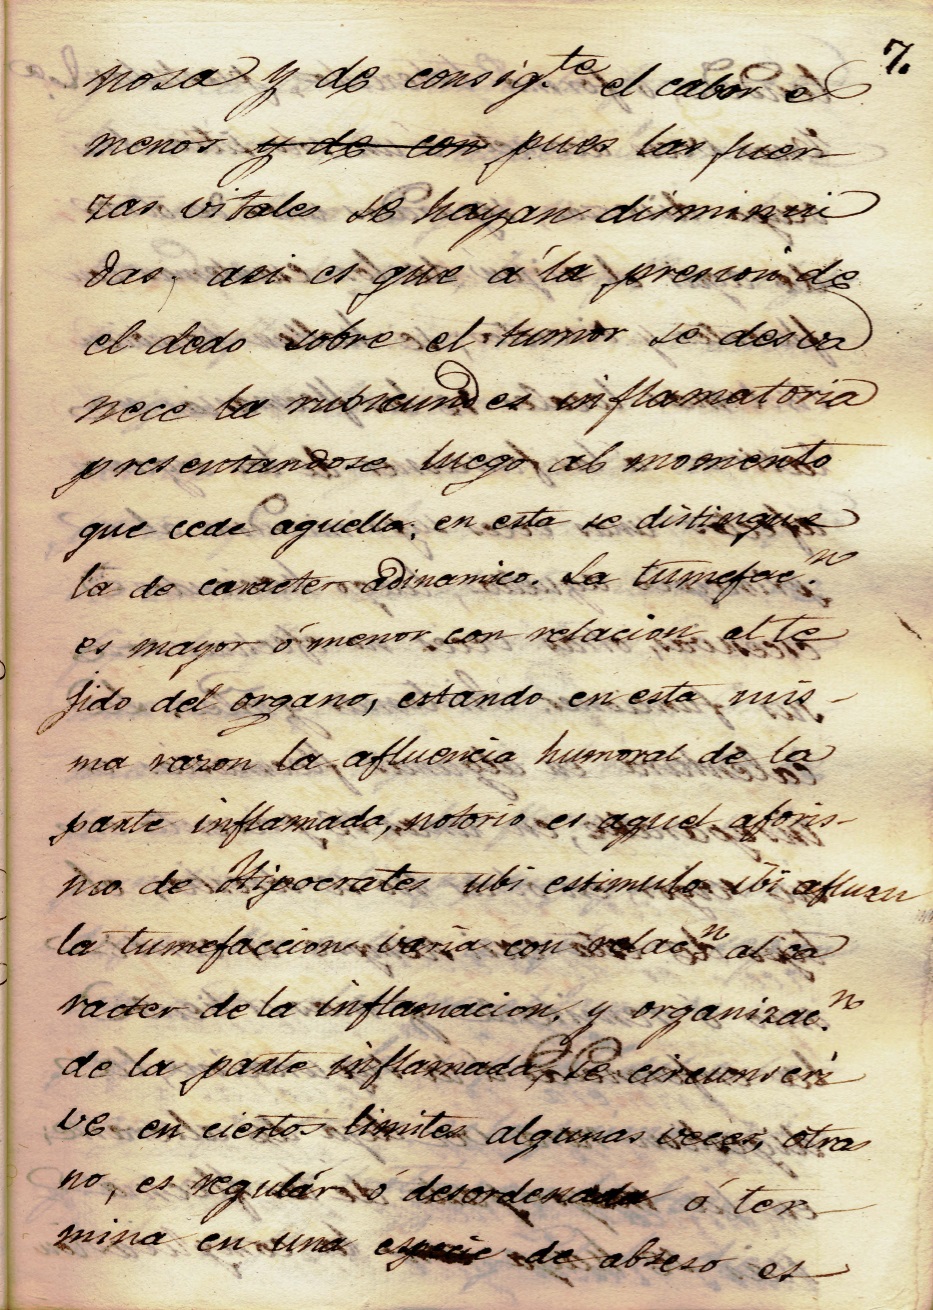 7.
nosa y de consig.te el calor es
menor y de con pues las fuer
zas vitales se hayan disminui
das, asi es que á la presion de
el dedo sobre el tumor se desva
nece la rubicundes inflamatoria
presentandose luego al momento
que cede aquella, en esta se distingue
la de caracter adinamico. La tumefac.n
es mayor ó menor con relacion al te
jido del organo, estando en esta mis-
ma razon la afluencia humoral de la
parte inflamada, notorio es aquel aforis-
mo de Hipocrates ubi estimulo ibi afluxu
la tumefaccion varia con relac.n al ca
racter de la inflamacion, y organizac.n
de la parte inflamada, se circunscri
ve en ciertos limites algunas veces, otras
no, es regulár ó desordenada ó ter-
mina en una especie de abseso es